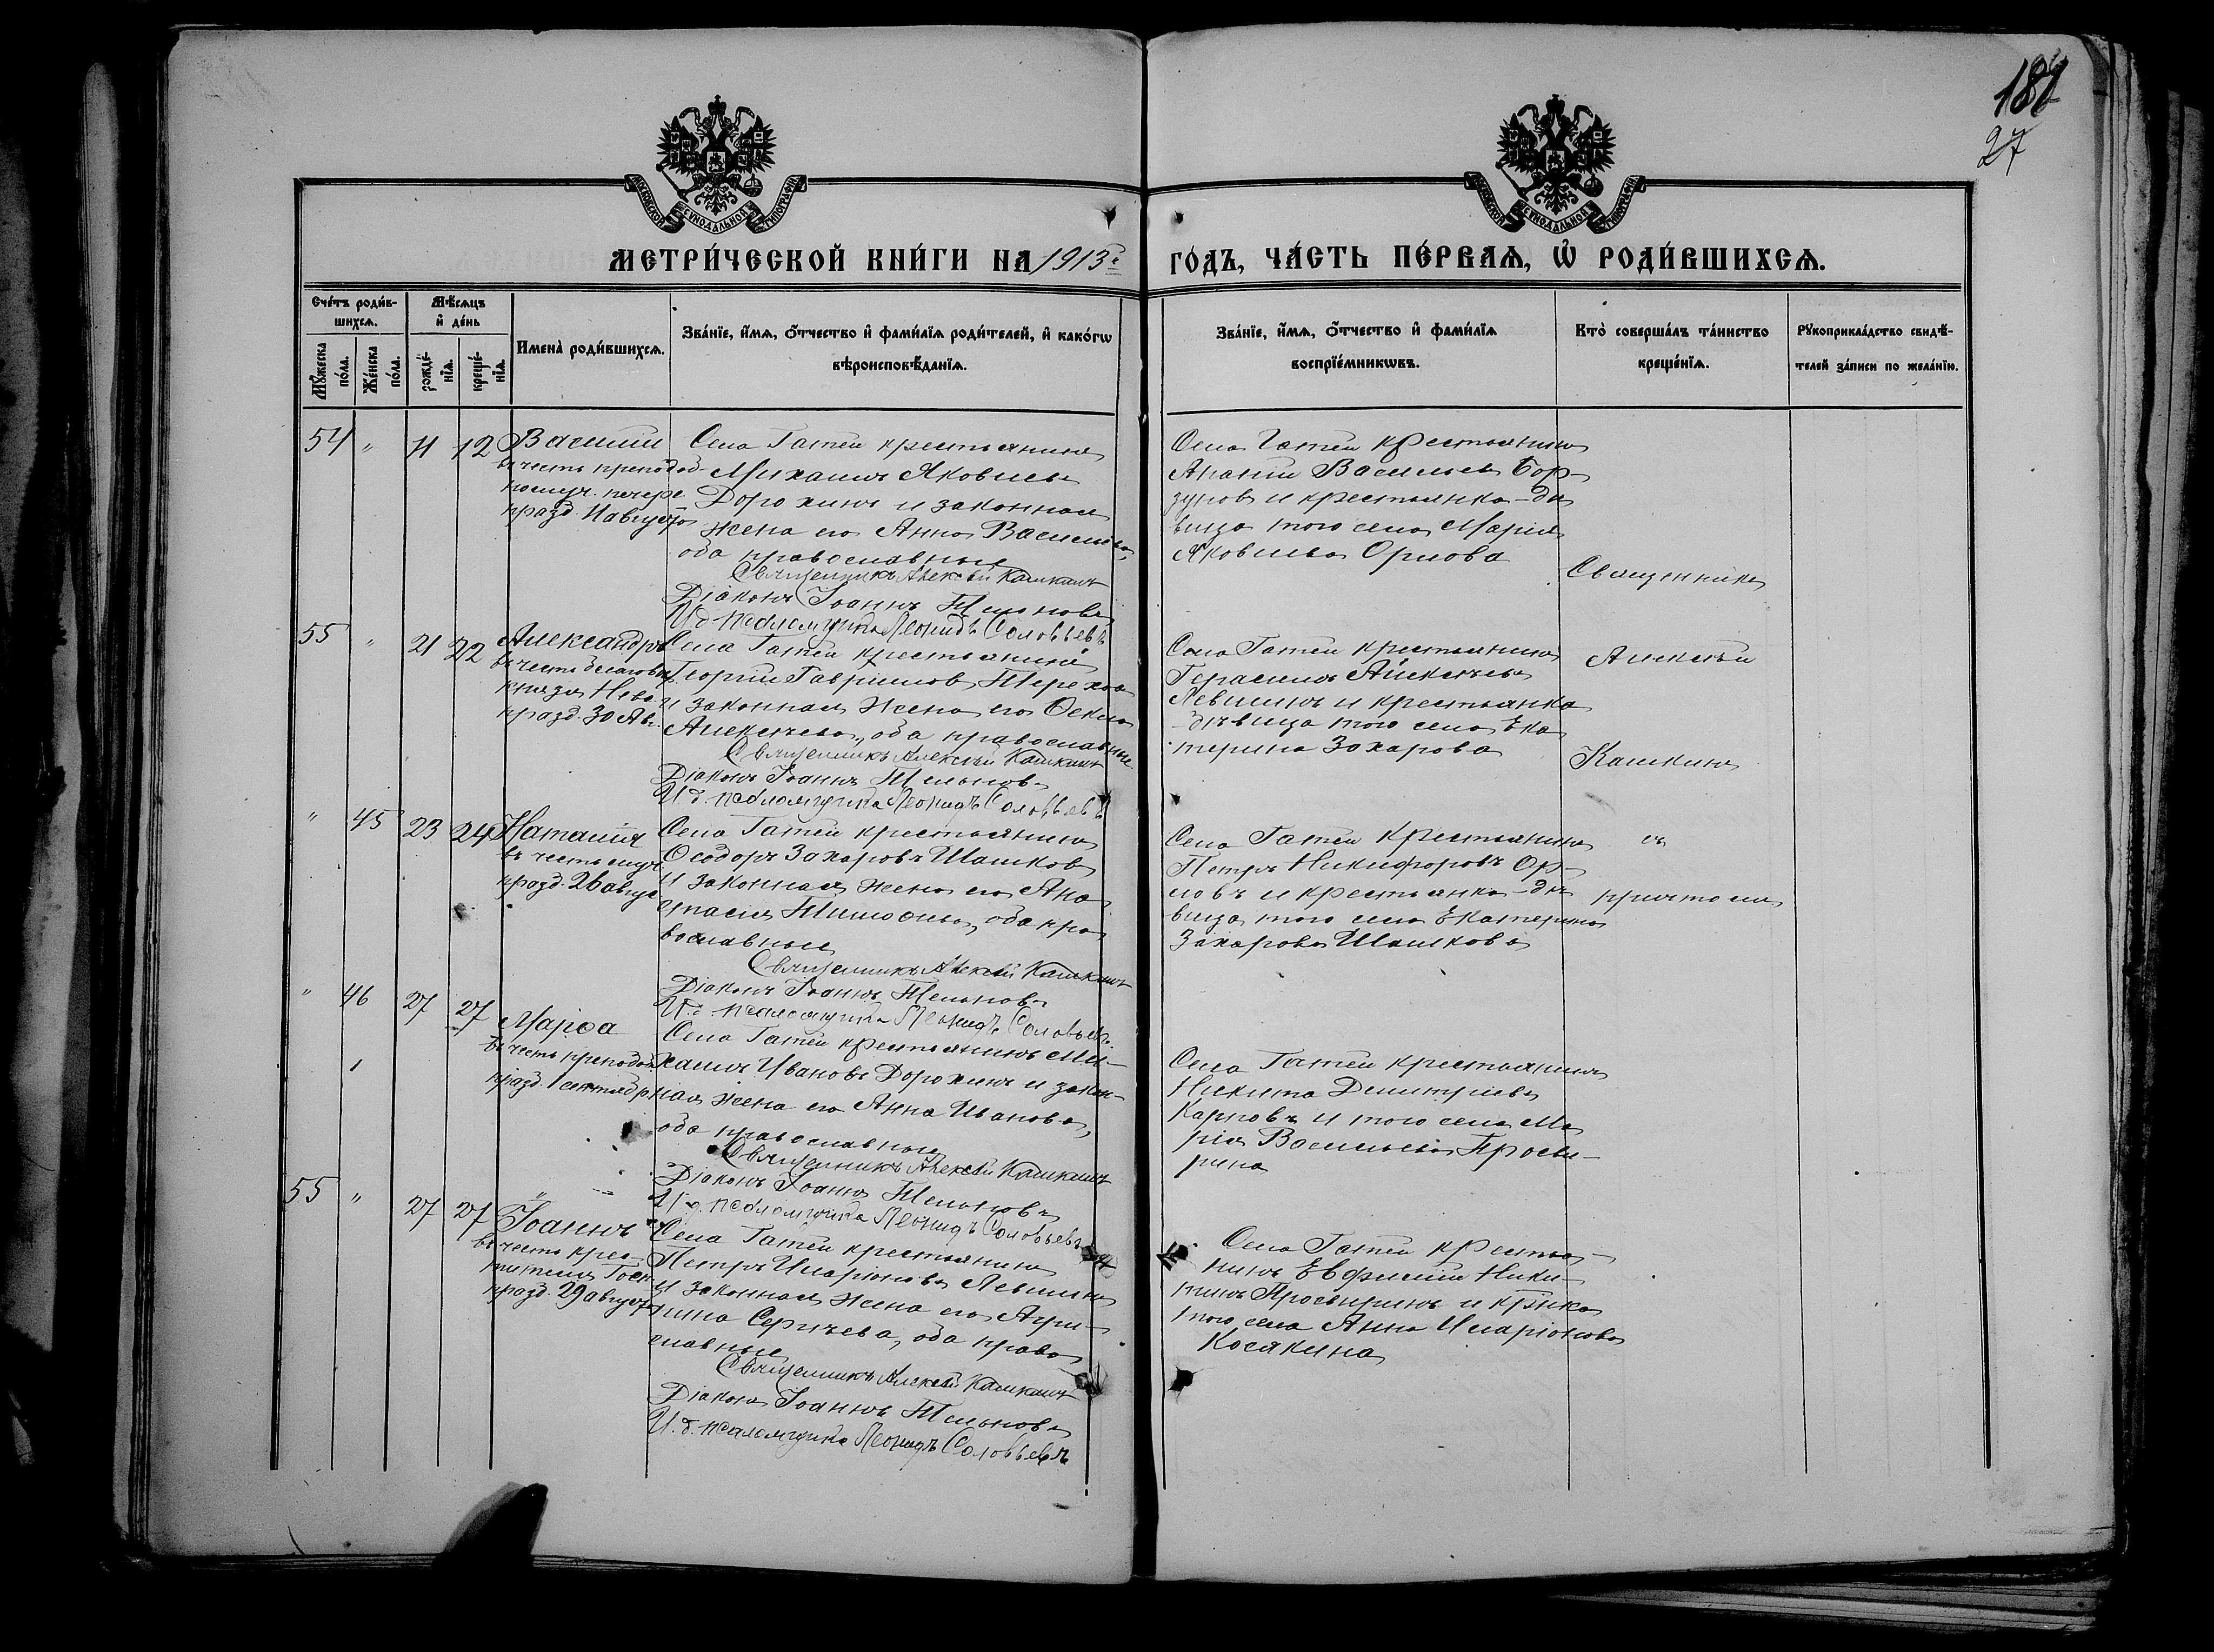 181
27
МОСКОВСКОЙ СУНОДАЛЬНОЙ ТИПОГРАФІИ
МОСКОВСКОЙ СУНОДАЛЬНОЙ ТИПОГРАФІИ
МЕТРИ́ЧЕСКОЙ КНИ́ГИ НА 1913 й
ГО́ДЪ, ЧА́СТЬ ПЕ́РВАѦ, Ѿ РОДИ́ВШИХСѦ.
Сче́тъ роди́вшихсѧ.
Мꙋ́жеска по́ла.
Же́нска по́ла.
Мѣ́сѧцъ и҆ де́нь
рожде́нїѧ.
креще́нїѧ.
Имена̀ роди́вшихсѧ.
Зва́нїе, и҆́мѧ, ѻ҆́тчество и҆ фами́лїѧ роди́телей, и҆ како́гѡ
вѣроисповѣ́данїѧ.
Зва́нїе, и҆́мѧ, ѻ҆́тчество и҆ фами́лїѧ
воспрїе́мникѡвъ.
Кто̀ соверша́лъ та́инство
креще́нїѧ.
Рꙋкоприкла́дство свидѣ́-
телей за́писи по жела́нїю.
54 " 11 12 Василій
въ честь преподоб-
номуч. печер.
празд. 11 августа
Села Гатей крестьянинъ
Михаилъ Яковлевъ
Дорохинъ и законная
жена его Анна Васильева,
оба православные
Священникъ Алексѣй Кашкинъ
Діаконъ Іоаннъ
И. д. псаломщика Леонидъ Соловьевъ
Села Гатей крестьянинъ
Василіевъ Бор-
зуновъ и крестьянка-дѣ
вица того села Марія
Яковлева Орлова
Священникъ
55 " 21 22 Александръ
въ честь благовѣр
князя Нев.
празд. 30 Авг.
Села Гатей крестьянинъ
Георгій Гавриловъ Тереховъ
и законная жена его Ѳекла
Алексѣева, оба православные
Священникъ Алексѣй Кашкинъ
Діаконъ Іоаннъ
И. д. псаломщика Леонидъ Соловьевъ
Села Гатей крестьянинъ
Герасимъ Алексѣевъ
Левшинъ и крестьянка
-дѣвица того села Ека
терина Захарова
Алексѣй
Кашкинъ
" 45 23 24 Наталія
въ честь муч
празд. 26 авгус
Села Гатей крестьянинъ
Ѳеодоръ Захаровъ Шашковъ
и законная жена его Ана
стасія Тимоѳеева, оба пра
вославные
Священникъ Алексѣй Кашкинъ
Діаконъ Іоаннъ
И. д. псаломщика Леонидъ Соловьевъ
Села Гатей крестьянинъ
Петръ Никифоровъ Ор-
ловъ и крестьянка-дѣ
вица того села Екатерина
Захарова Шашкова
съ
причтомъ
" 46 27 27 Марѳа
въ честь преподоб
празд. 1 сентября
1
Села Гатей крестьянинъ Ми-
хаилъ Ивановъ Дорохинъ и закон-
ная жена его Анна Иванова,
оба православные
Священникъ Алексѣй Кашкинъ
Діаконъ Іоаннъ
И. д. псаломщика Леонидъ Соловьевъ
Села Гатей крестьянинъ
Никита Димитріевъ
Карповъ и того села Ма
рія Васильева Просви-
рина
55 " 27 27 Іоаннъ
въ честь крес-
тителя Госп
празд. 29 августа
Села Гатей крестьянинъ
Петръ Иларіоновъ Левшинъ
и законная жена его Агри-
пина Сергѣева, оба право
славные
Священникъ Алексѣй Кашкинъ
Діаконъ Іоаннъ
И. д. псаломщика Леонидъ Соловьевъ
Села Гатей крестья-
нинъ Евфимій Ники-
тинъ Просвиринъ и кр-нка
того села Анна Иларіонова
Косякина